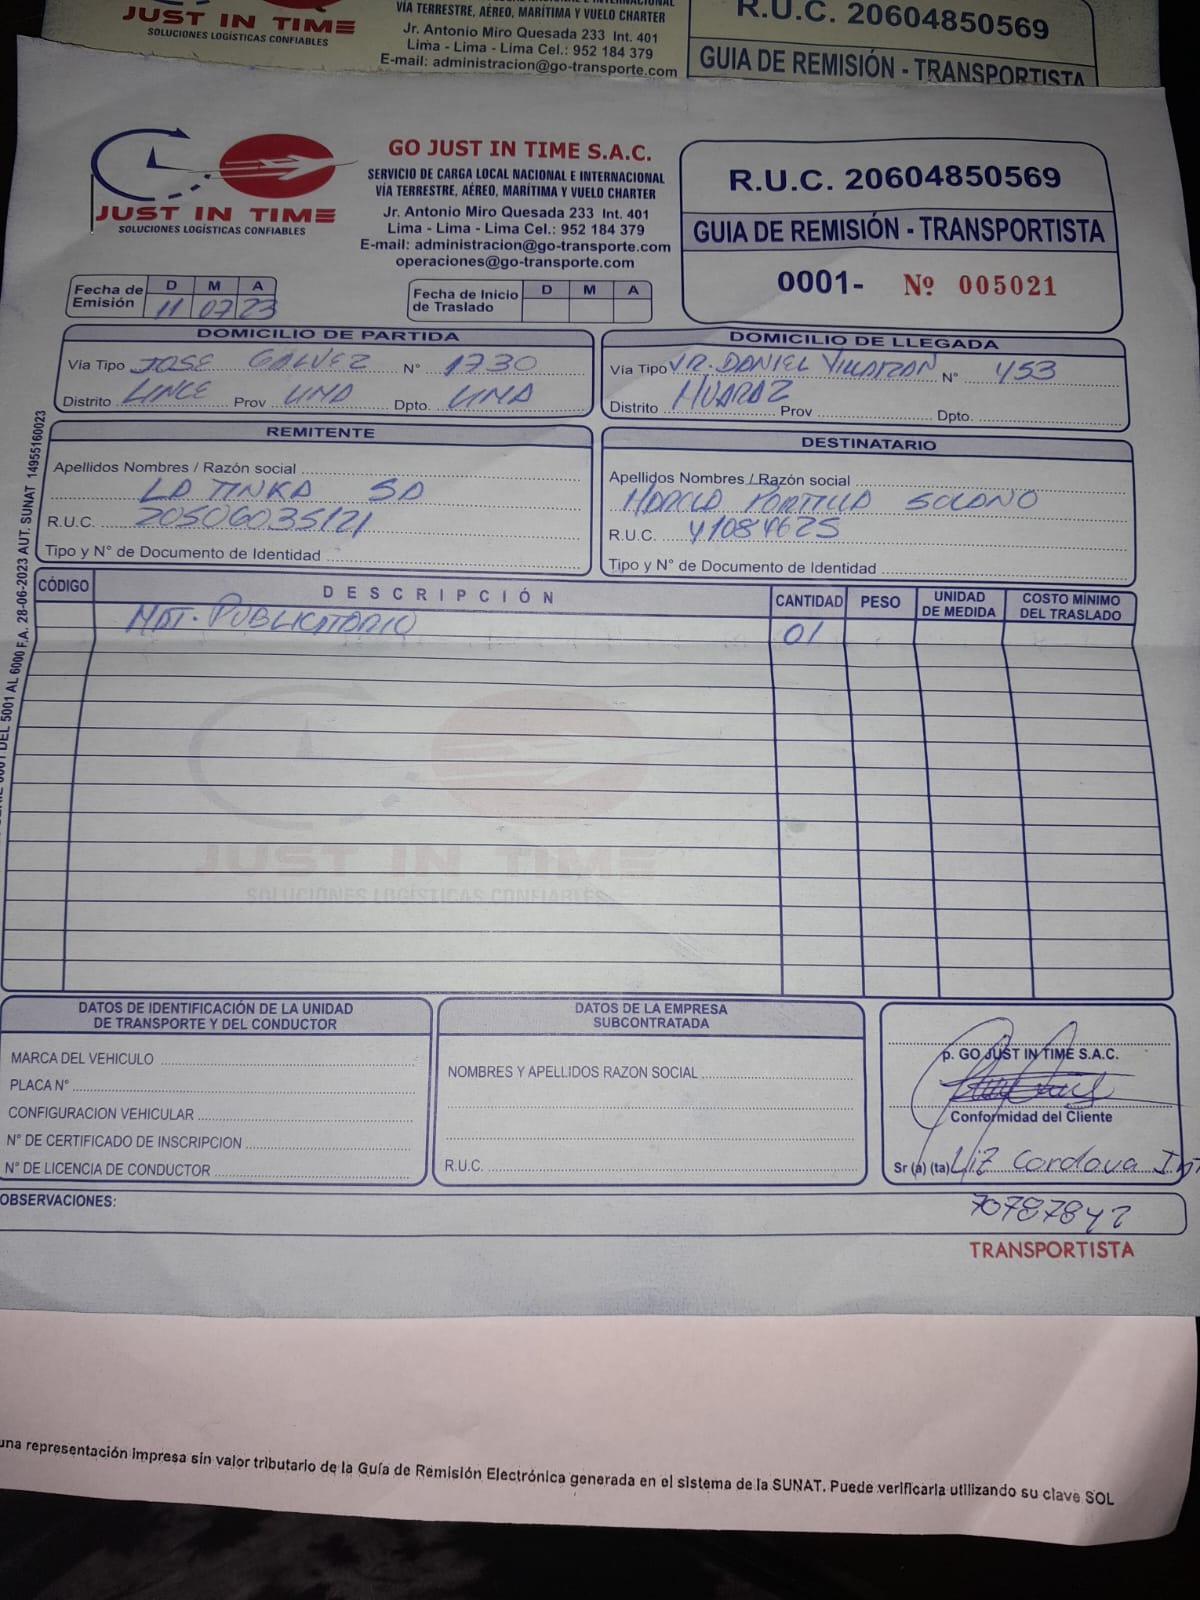 JUST IN TIME
SOLUCIONES LOGÍSTICAS CONFIABLES
VÍA TERRESTRE, AÉREO, MARÍTIMA Y VUELO CHARTER
Jr. Antonio Miro Quesada 233 Int. 401
Lima - Lima - Lima Cel.: 952 184 379
E-mail: administracion@go-transporte.com
R.U.C. 20604850569
GUIA DE REMISIÓN - TRANSPORTISTA
JUST IN TIME
SOLUCIONES LOGÍSTICAS CONFIABLES
GO JUST IN TIME S.A.C.
SERVICIO DE CARGA LOCAL NACIONAL E INTERNACIONAL
VÍA TERRESTRE, AÉREO, MARÍTIMA Y VUELO CHARTER
Jr. Antonio Miro Quesada 233 Int. 401
Lima - Lima - Lima Cel.: 952 184 379
E-mail: administracion@go-transporte.com
operaciones@go-transporte.com
R.U.C. 20604850569
GUIA DE REMISIÓN - TRANSPORTISTA
0001- Nº 005021
Fecha de Emisión D M A
11 07 23
Fecha de Inicio de Traslado D M A
DOMICILIO DE PARTIDA
Vía Tipo JOSE GALVEZ N° 1730
Distrito LINCE Prov LIMA Dpto. LIMA
DOMICILIO DE LLEGADA
Vía Tipo JR. DANIEL VILLAIZAN N° 453
Distrito HUARAZ Prov Dpto.
REMITENTE
Apellidos Nombres / Razón social
LA TINKA SA
R.U.C. 20506035121
Tipo y N° de Documento de Identidad
DESTINATARIO
Apellidos Nombres / Razón social
HAROLD PORTILLA SOLANO
R.U.C. 41084625
Tipo y N° de Documento de Identidad
CÓDIGO DESCRIPCIÓN CANTIDAD PESO UNIDAD DE MEDIDA COSTO MÍNIMO DEL TRASLADO
MAT. PUBLICITARIO 01
JUST IN TIME
SOLUCIONES LOGÍSTICAS CONFIABLES
DEL 5001 AL 6000 F.A. 28-06-2023 AUT. SUNAT 14955160023
DATOS DE IDENTIFICACIÓN DE LA UNIDAD
DE TRANSPORTE Y DEL CONDUCTOR
MARCA DEL VEHICULO
PLACA N°
CONFIGURACION VEHICULAR
N° DE CERTIFICADO DE INSCRIPCION
N° DE LICENCIA DE CONDUCTOR
DATOS DE LA EMPRESA
SUBCONTRATADA
NOMBRES Y APELLIDOS RAZON SOCIAL
R.U.C.
p. GO JUST IN TIME S.A.C.
Conformidad del Cliente
Sr (a) (ta) Liz Cordova
OBSERVACIONES:
70787842
TRANSPORTISTA
una representación impresa sin valor tributario de la Guía de Remisión Electrónica generada en el sistema de la SUNAT. Puede verificarla utilizando su clave SOL